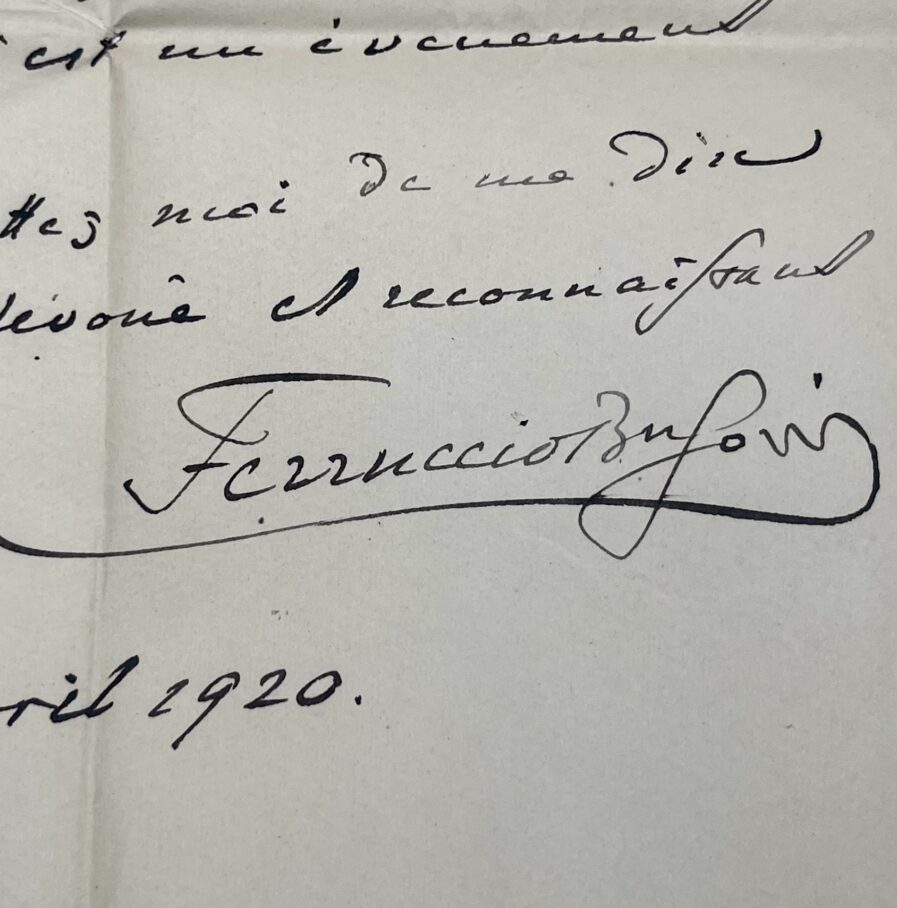 'est un évenement
ttez moi de me dire
dévoué et reconnaissant
Ferruccio Busoni
ril 1920.